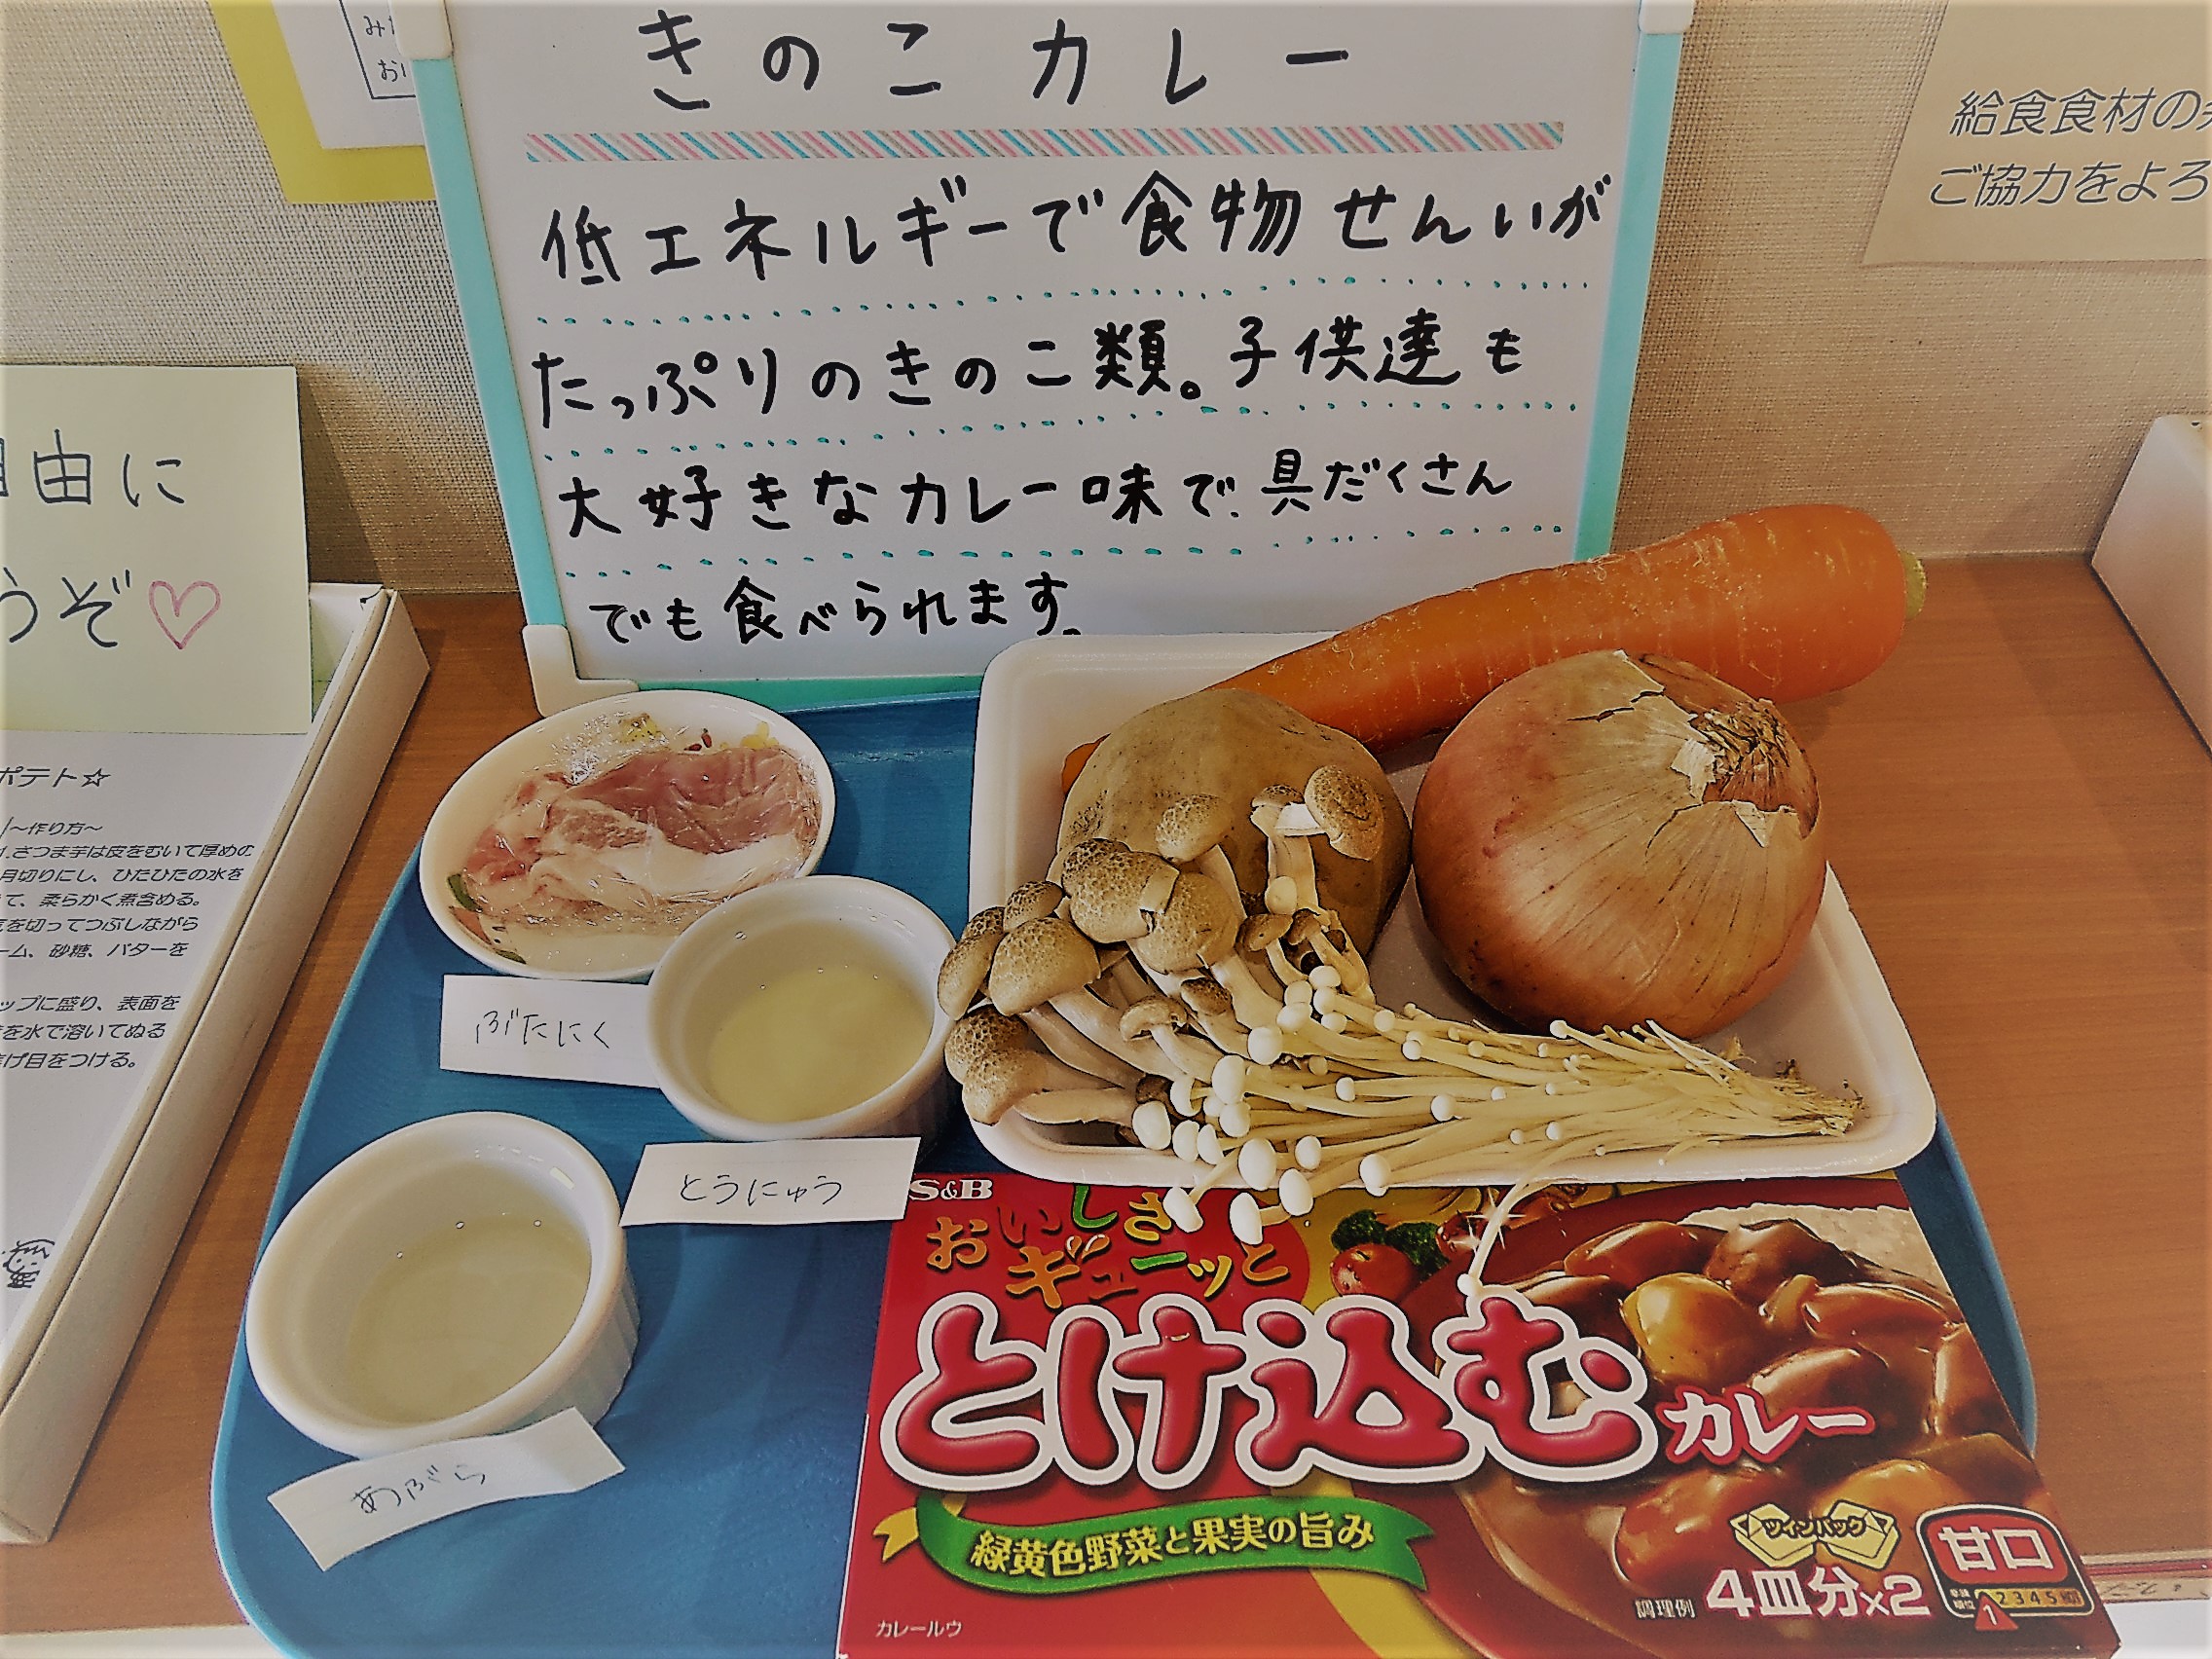 きのこカレー
低エネルギーで食物せんいが
たっぷりのきのこ類。子供達も
大好きなカレー味で、具だくさん
でも食べられます。
給食食材の
ご協力をよろ
由に
うぞ♡
ポテト☆
～作り方～
1.さつま芋は皮をむいて厚めの
月切りにし、ひたひたの水を
て、柔らかく煮含める。
を切ってつぶしながら
ーム、砂糖、バターを
ップに盛り、表面を
を水で溶いてぬる
げ目をつける。
ぶたにく
とうにゅう
あぶら
S&B
おいしさ
ギューッと
とけ込む
カレー
緑黄色野菜と果実の旨み
ツインパック
4皿分×2
甘口
1 2 3 4 5
調理例
カレールウ